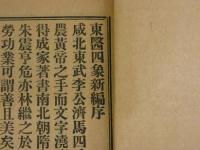 東醫四象新編序
咸北東武李公濟馬四
農黃帝之手而文字澆
得成家著書南北朝隋
朱震亨危亦林繼之於
勞功業可謂善且美矣